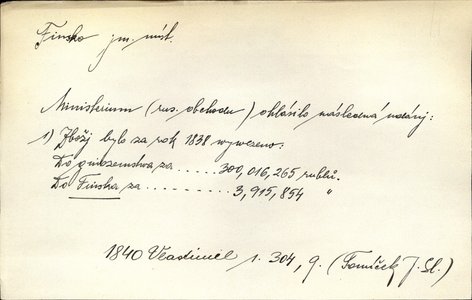 Finsko jm. míst.
Ministerium (rus. obchodu) ohlásilo následowná udánj:
1) Zbožj bylo za rok 1838 wywezeno:
Do ginozemstwa za ..... 300,016,265 rublů.
Do Finska za ......... 3,915,854 "
1840 Vlastimil 1. 304, 9. (Tomíček J. Sl.)